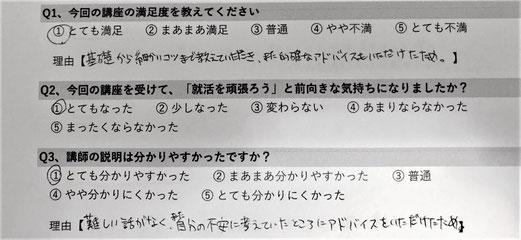 Q1、今回の講座の満足度を教えてください
①とても満足 ②まあまあ満足 ③普通 ④やや不満 ⑤とても不満
理由【基礎から細かいコツまで教えていただき、また的確なアドバイスをいただけたため。】
Q2、今回の講座を受けて、「就活を頑張ろう」と前向きな気持ちになりましたか？
①とてもなった ②少しなった ③変わらない ④あまりならなかった
⑤まったくならなかった
Q3、講師の説明は分かりやすかったですか？
①とても分かりやすかった ②まあまあ分かりやすかった ③普通
④やや分かりにくかった ⑤とても分かりにくかった
理由【難しい話がなく、自分の不安に考えていたところにアドバイスをいただけたため】